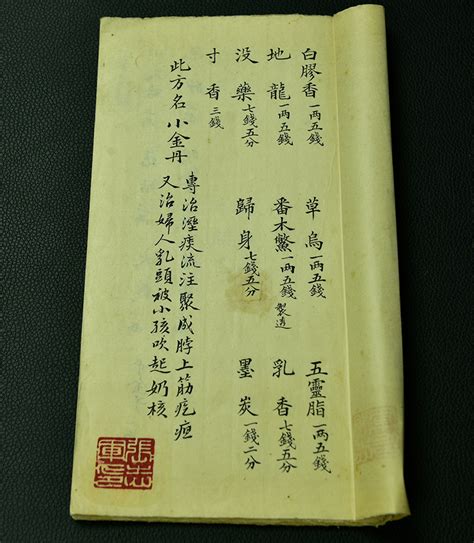 白膠香一两五錢 草烏一两五錢 五靈脂一两五錢
地龍一两五錢 番木鱉一两五錢製透 乳香七錢五分
没藥七錢五分 歸身七錢五分 墨炭一錢二分
寸香三錢
此方名小金丹 專治溼痰流注聚成脖上筋疙疸
又治婦人乳頭被小孩吹起奶核
張志